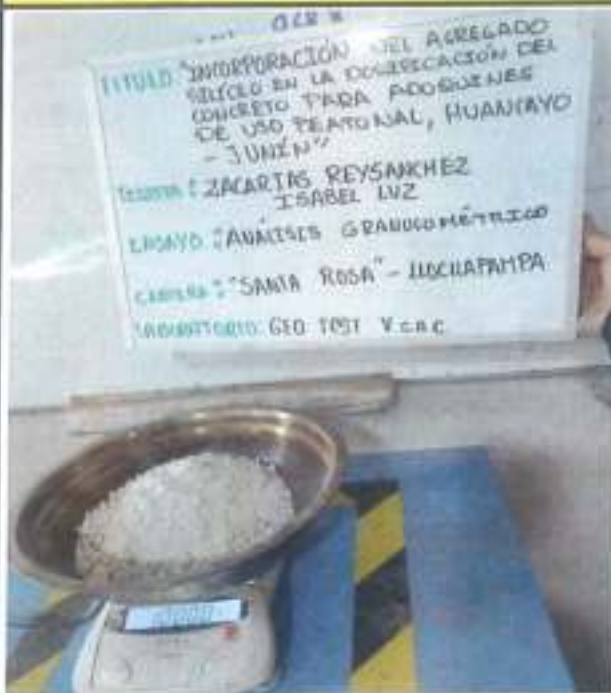 TITULO: "INCORPORACIÓN DEL AGREGADO
SILÍCEO EN LA DOSIFICACIÓN DEL
CONCRETO PARA ADOQUINES
DE USO PEATONAL, HUANCAYO
- JUNÍN"
TESISTA: ZACARIAS REYSANCHEZ
ISABEL LUZ
ENSAYO: ANÁLISIS GRANULOMÉTRICO
CANTERA: "SANTA ROSA" - LLOCLLAPAMPA
LABORATORIO: GEO TEST V